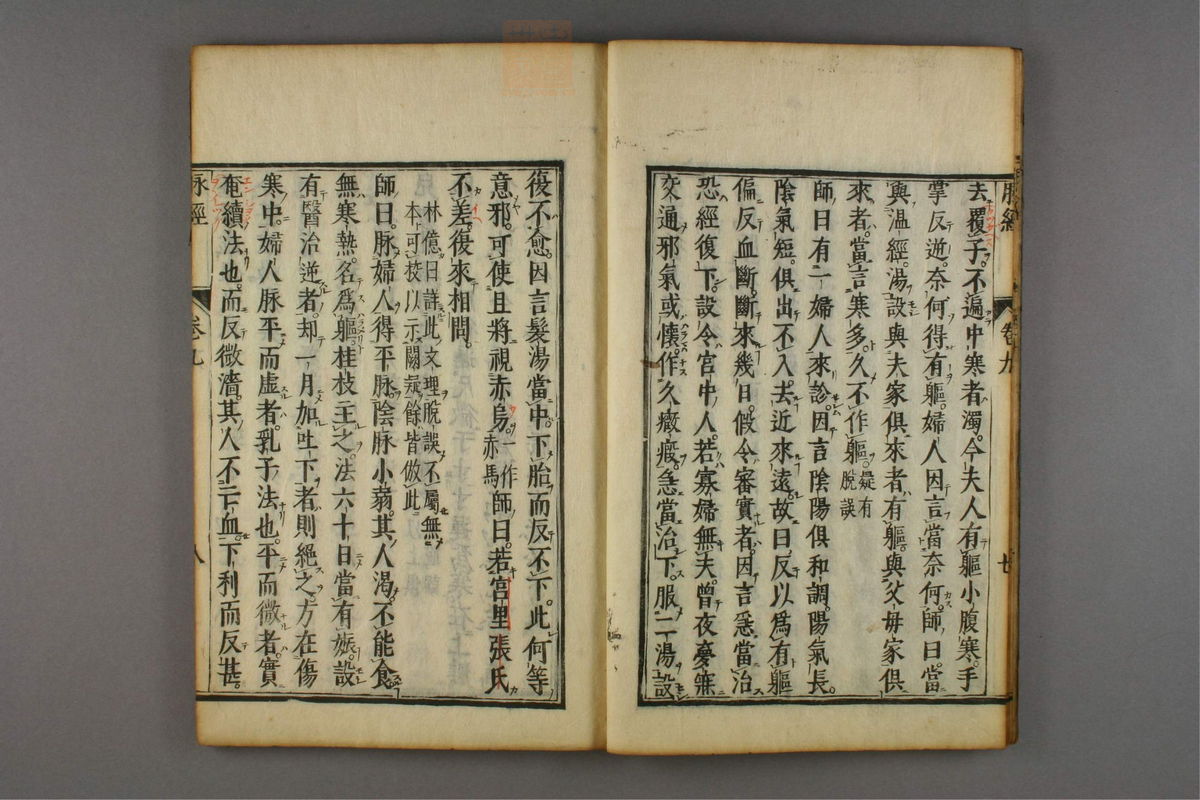 脉經
卷九
七
去覆子。不遍中寒者濁。今夫人有軀小腹寒。手
掌反逆。奈何得有軀。婦人因言當奈何。師曰當
與温經湯。設與夫家俱來者有軀。與父母家俱
來者。當言寒多。久不作軀。疑有脫誤
師曰有二婦人來診。因言陰陽俱和調。陽氣長。
陰氣短。俱出不入。去近來遠。故曰反以爲有軀
偏反血斷。斷來幾日。假令審實者。因言急當治
恐經復下。設令宮中人。若寡婦無夫。曾夜夢寐
交通邪氣或懷。作久癥瘕。急當治下。服二湯設
復不愈。因言髮湯當中。下胎而反不下。此何等
意邪。可使且將視赤烏。一作赤馬師曰。若宮里張氏
不差。復來相問。
林億曰詳此文理脫誤不屬無
本可校以示闕疑餘皆倣此。
師曰。脉婦人得平脉。陰脉小蒻。其人渴。不能食
無寒熱。名爲軀。桂枝主之。法六十日當有娠。設
有醫治逆者。却一月加吐下者。則絕之。方在傷
寒中。婦人脉平而虛者。乳子法也。平而微者。實
奄續法也。而反微濇。其人不亡血。下利而反甚。
脉經
卷九
八